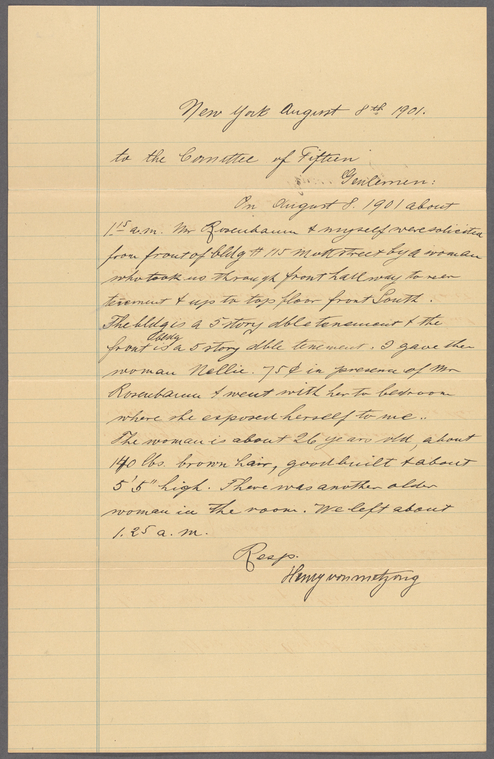 New York August 8th 1901.
to the Comittee of Fifteen
Genlemen:
On August 8. 1901 about
1 15 a.m. Mr Rosenbaum & myself were solicited
from front of bldg # 115 Mott street by a woman
who took us through front hall way to rear
tenement & up to top floor front South.
The bldg is a 5 story dble tenement & the
front bldg is a 5 story dble tenement. I gave the
woman Nellie. 75¢ in presence of Mr
Rosenbaum & went with her to bedroom
where she exposed herself to me..
The woman is about 26 years old, about
140 lbs. brown hair, good built & about
5' 5" high. There was another older
woman in the room. We left about
1.25 a.m.
Resp.
Henry von